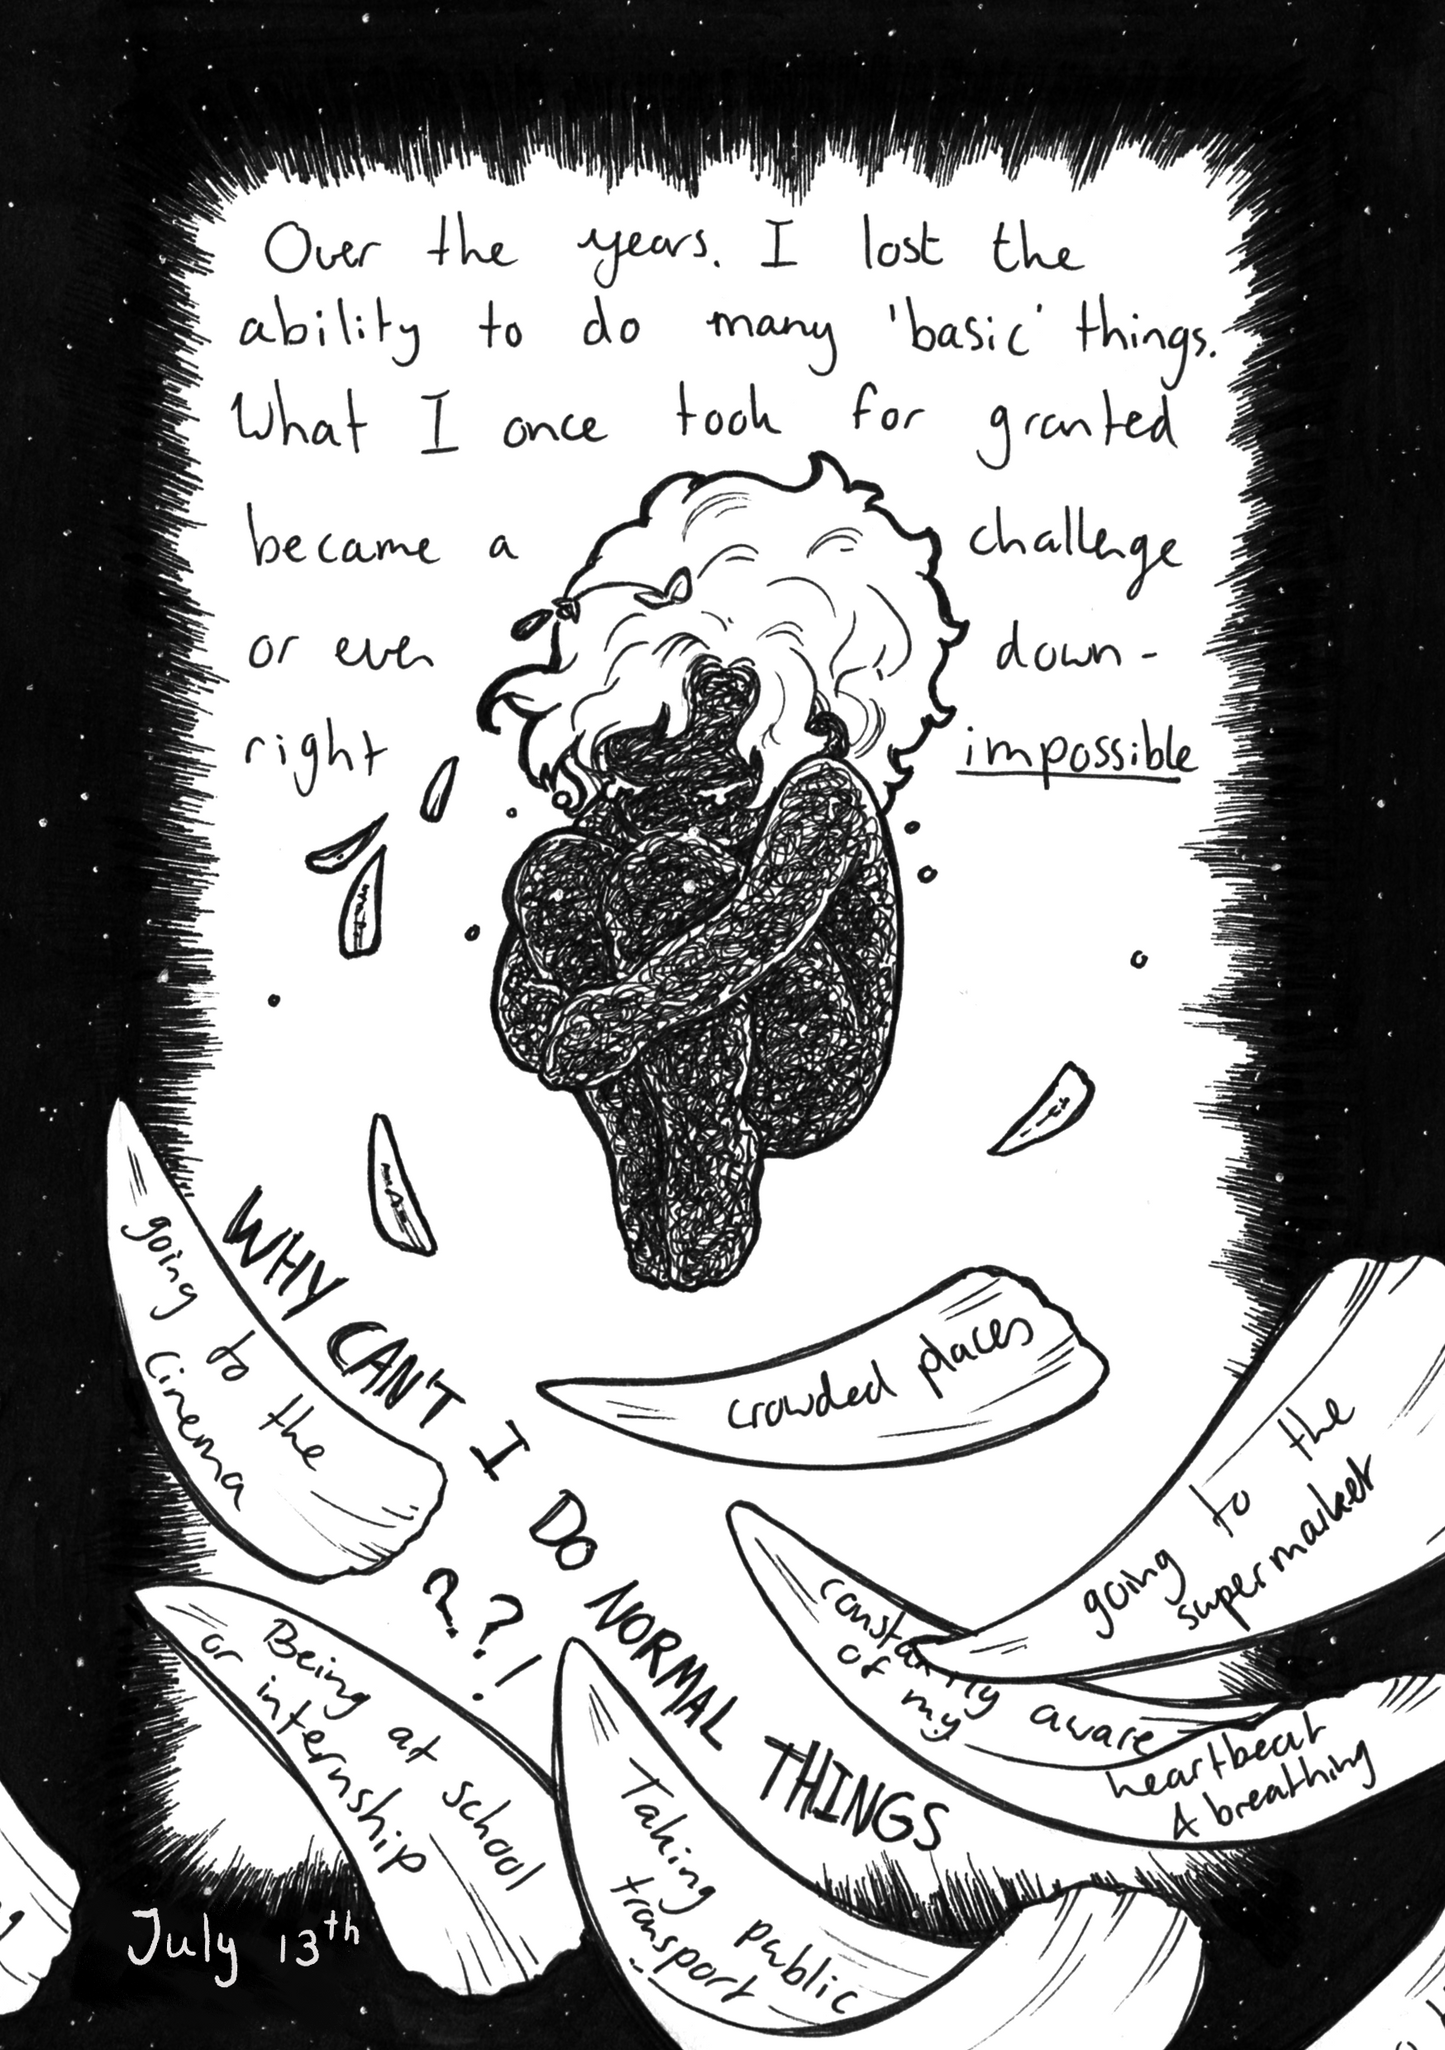 Over the years. I lost the
ability to do many 'basic' things.
What I once took for granted
became a challenge
or even down-
right impossible
going to the
cinema
WHY CAN'T I DO NORMAL THINGS
??!
crowded places
going to the
supermarket
constantly aware
of my
heartbeat
& breathing
Being at school
or internship
Taking public
transport
July 13th